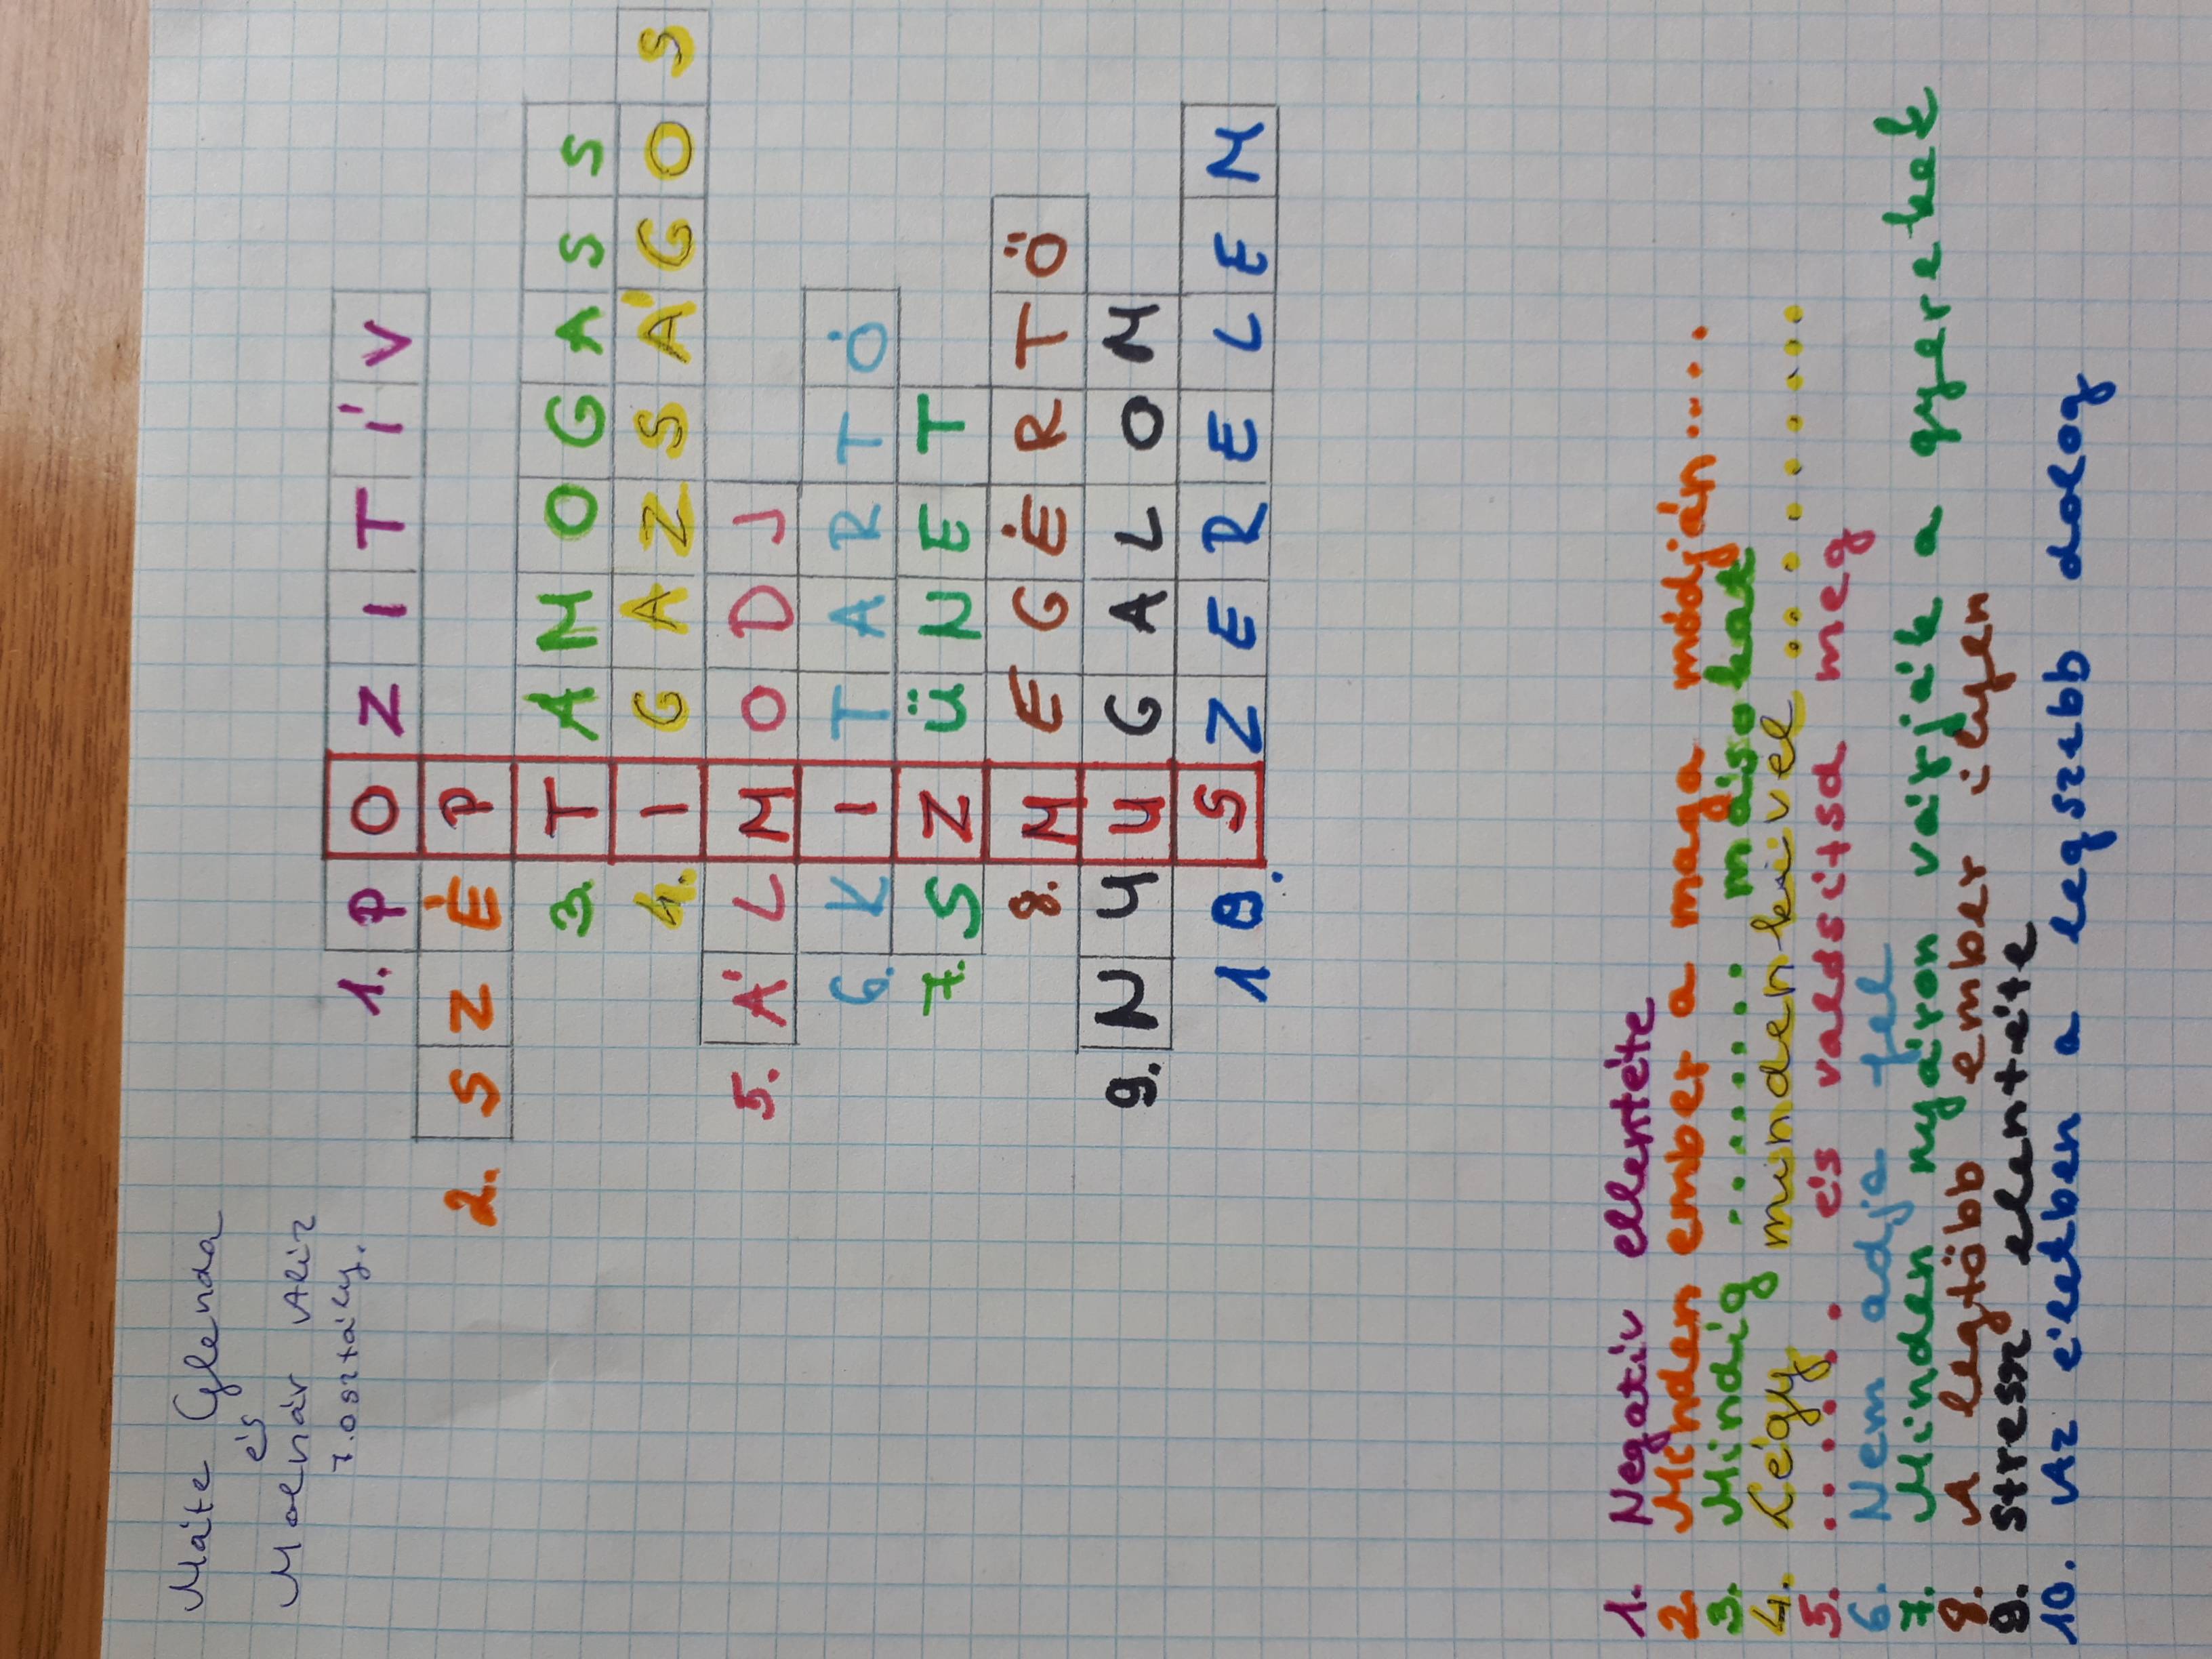 Máté Glenda
és
Molnár Aliz
7. osztály.
1. POZITÍV
2. SZÉP
3. TÁMOGASS
4. IGAZSÁGOS
5. ÁLMODJ
6. KITARTÓ
7. SZÜNET
8. MEGÉRTŐ
9. NYUGALOM
10. SZERELEM
1. Negatív ellentéte
2. Minden ember a maga módján.....
3. Mindig ........ másokat
4. Légy mindenkivel ..........
5. ...... és valósítsd meg
6. Nem adja fel
7. Minden nyáron várják a gyerekek
8. A legtöbb ember ilyen
9. stressz elentéte
10. Az életben a legszebb dolog